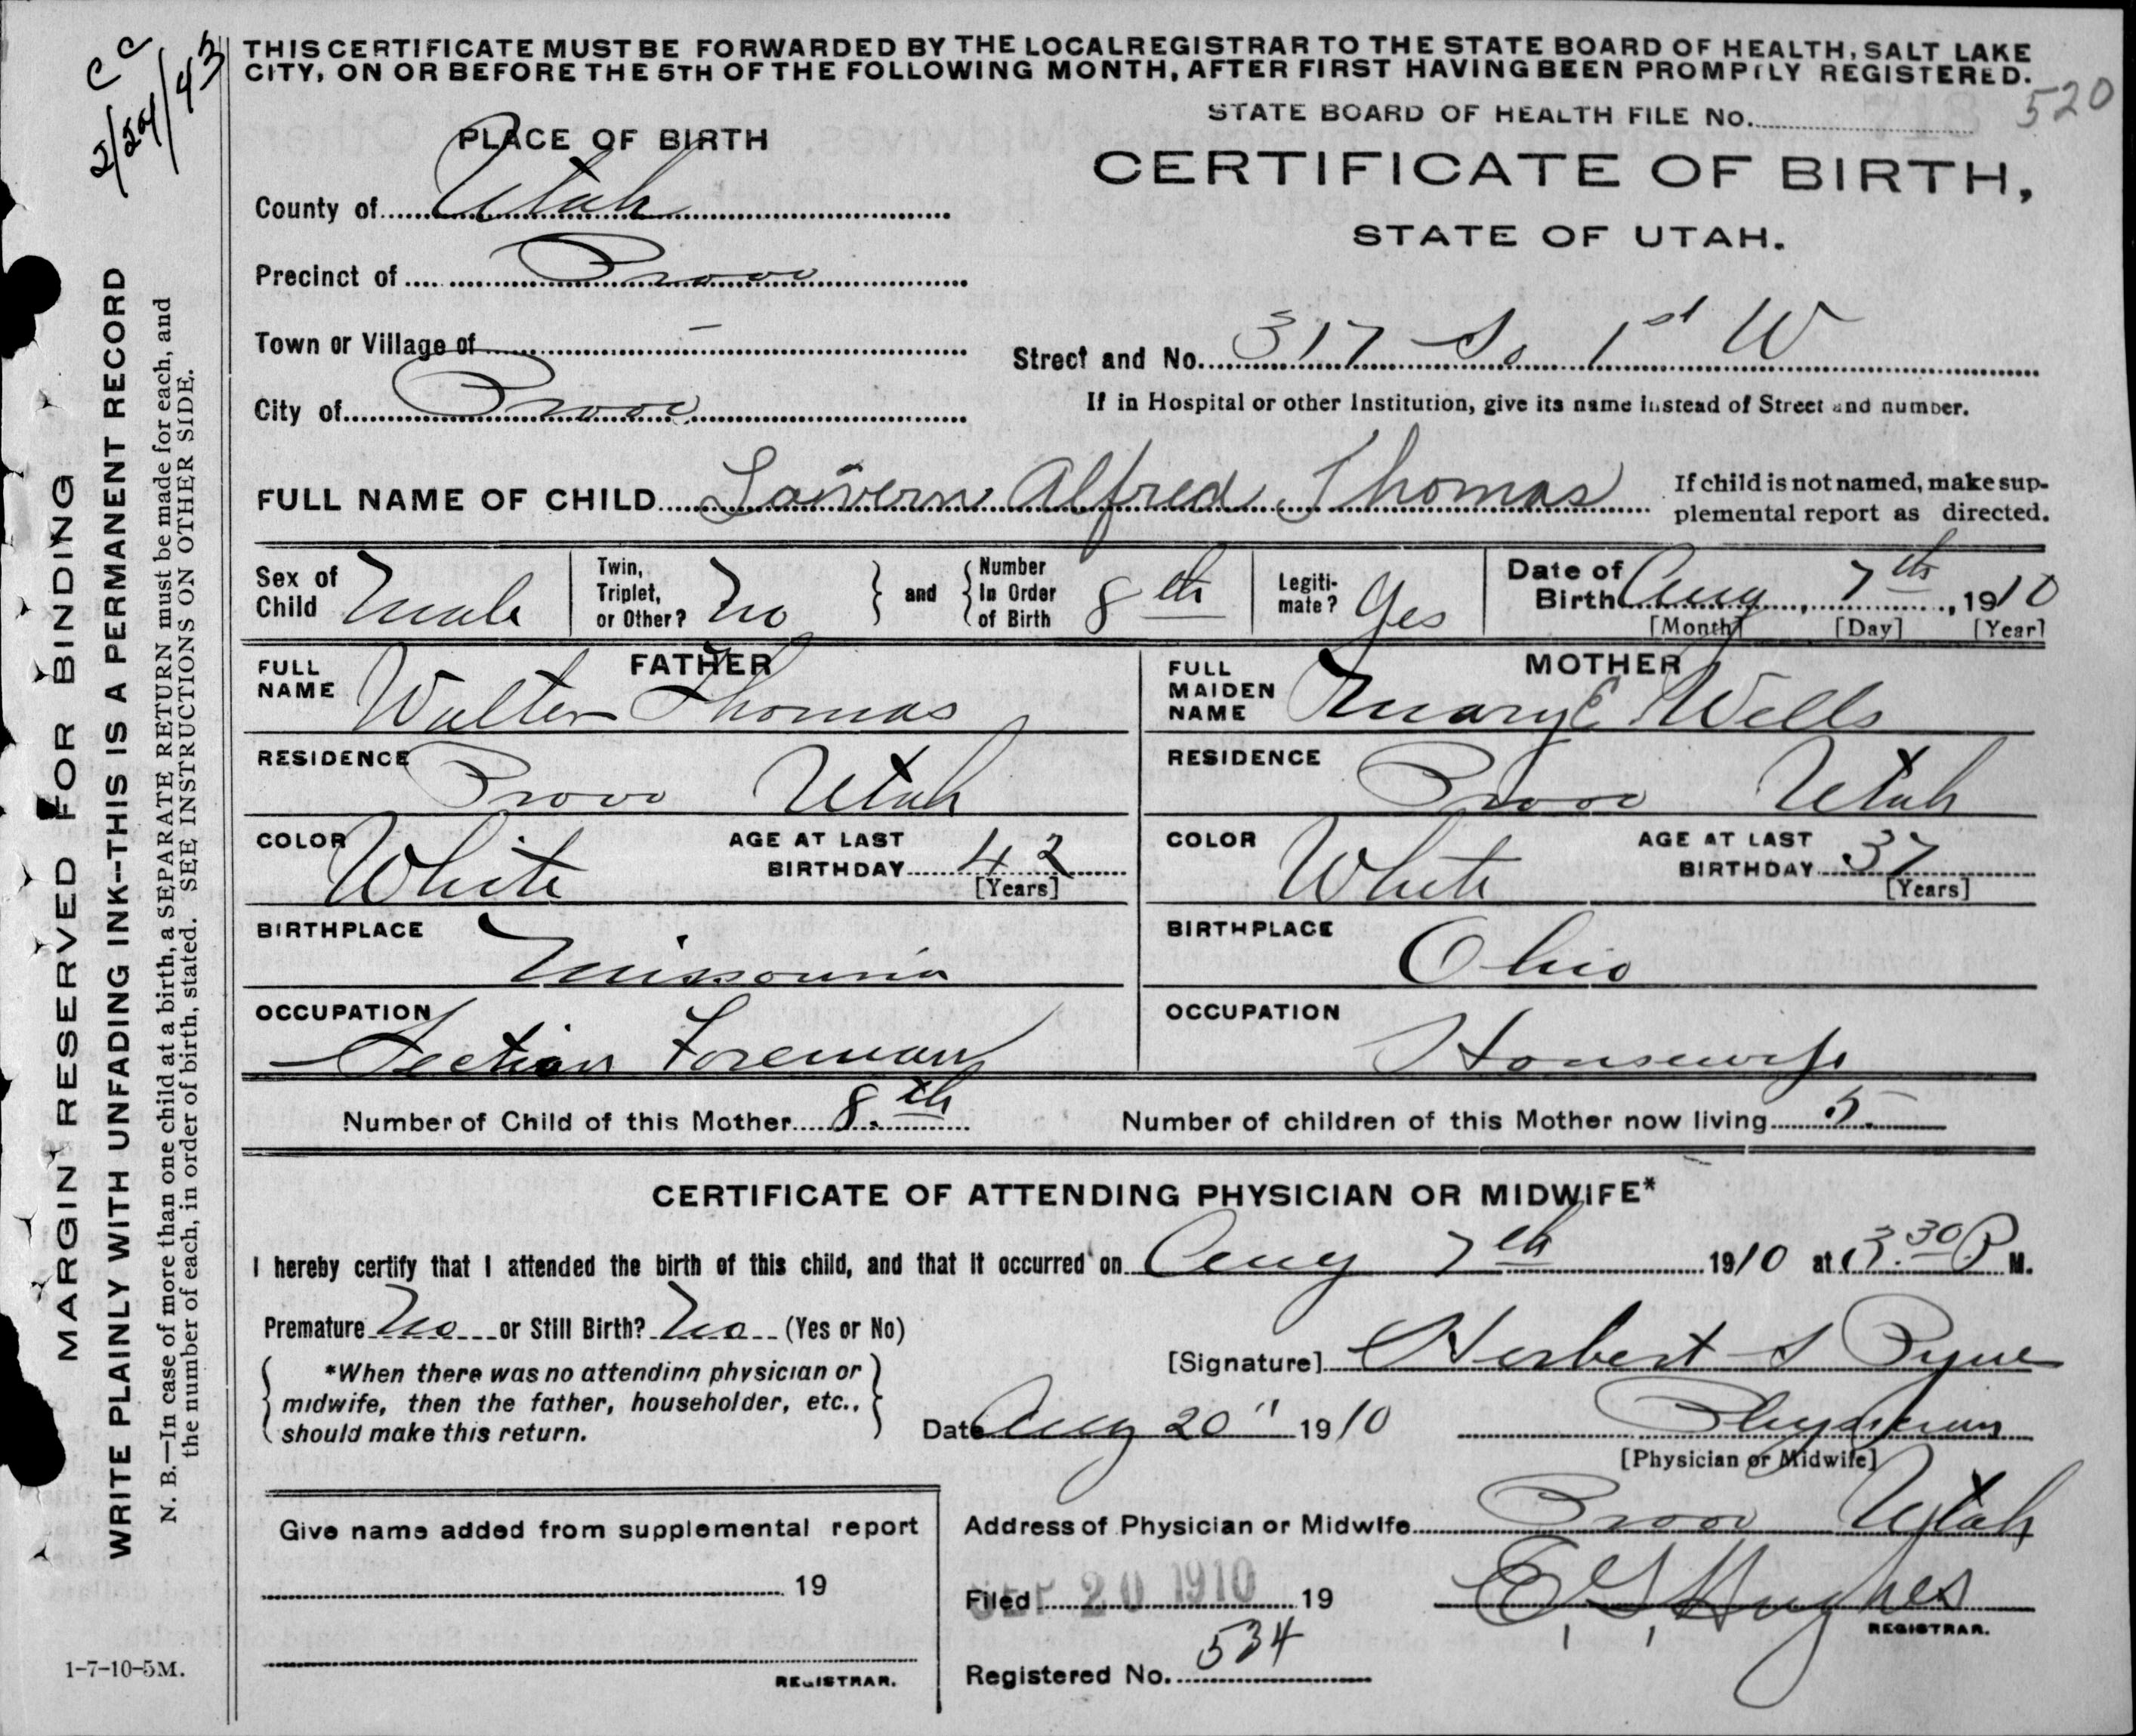 C C
2/24/43
THIS CERTIFICATE MUST BE FORWARDED BY THE LOCAL REGISTRAR TO THE STATE BOARD OF HEALTH, SALT LAKE
CITY, ON OR BEFORE THE 5TH OF THE FOLLOWING MONTH, AFTER FIRST HAVING BEEN PROMPTLY REGISTERED.
STATE BOARD OF HEALTH FILE NO. 520
PLACE OF BIRTH
CERTIFICATE OF BIRTH,
STATE OF UTAH.
County of Utah
Precinct of Provo
Town or Village of –
Street and No. 317 So 1st W
City of Provo
If in Hospital or other Institution, give its name instead of Street and number.
FULL NAME OF CHILD Lavern Alfred Thomas
If child is not named, make sup-
plemental report as directed.
Sex of Child Male
Twin, Triplet, or Other? No
and
Number In Order of Birth 8th
Legiti-mate? Yes
Date of Birth Aug 7th, 1910
[Month] [Day] [Year]
FATHER
FULL NAME Walter Thomas
RESIDENCE Provo Utah
COLOR White
AGE AT LAST BIRTHDAY 42
[Years]
BIRTHPLACE Missouria
OCCUPATION Section Foreman
MOTHER
FULL MAIDEN NAME Mary E Wells
RESIDENCE Provo Utah
COLOR White
AGE AT LAST BIRTHDAY 37
[Years]
BIRTHPLACE Ohio
OCCUPATION Housewife
Number of Child of this Mother 8th
Number of children of this Mother now living 5
CERTIFICATE OF ATTENDING PHYSICIAN OR MIDWIFE*
I hereby certify that I attended the birth of this child, and that it occurred on Aug 7th 1910 at 3.30 P M.
Premature No or Still Birth? No (Yes or No)
*When there was no attending physician or
midwife, then the father, householder, etc.,
should make this return.
[Signature] Herbert S Pyne
Date Aug 20" 1910
Physician
[Physician or Midwife]
Address of Physician or Midwife Provo Utah
Give name added from supplemental report
19
REGISTRAR.
Filed SEP 20 1910 19
E. G. Hughes
REGISTRAR.
Registered No. 534
MARGIN RESERVED FOR BINDING
WRITE PLAINLY WITH UNFADING INK--THIS IS A PERMANENT RECORD
N. B.—In case of more than one child at a birth, a SEPARATE RETURN must be made for each, and
the number of each, in order of birth, stated. SEE INSTRUCTIONS ON OTHER SIDE.
1-7-10-5M.